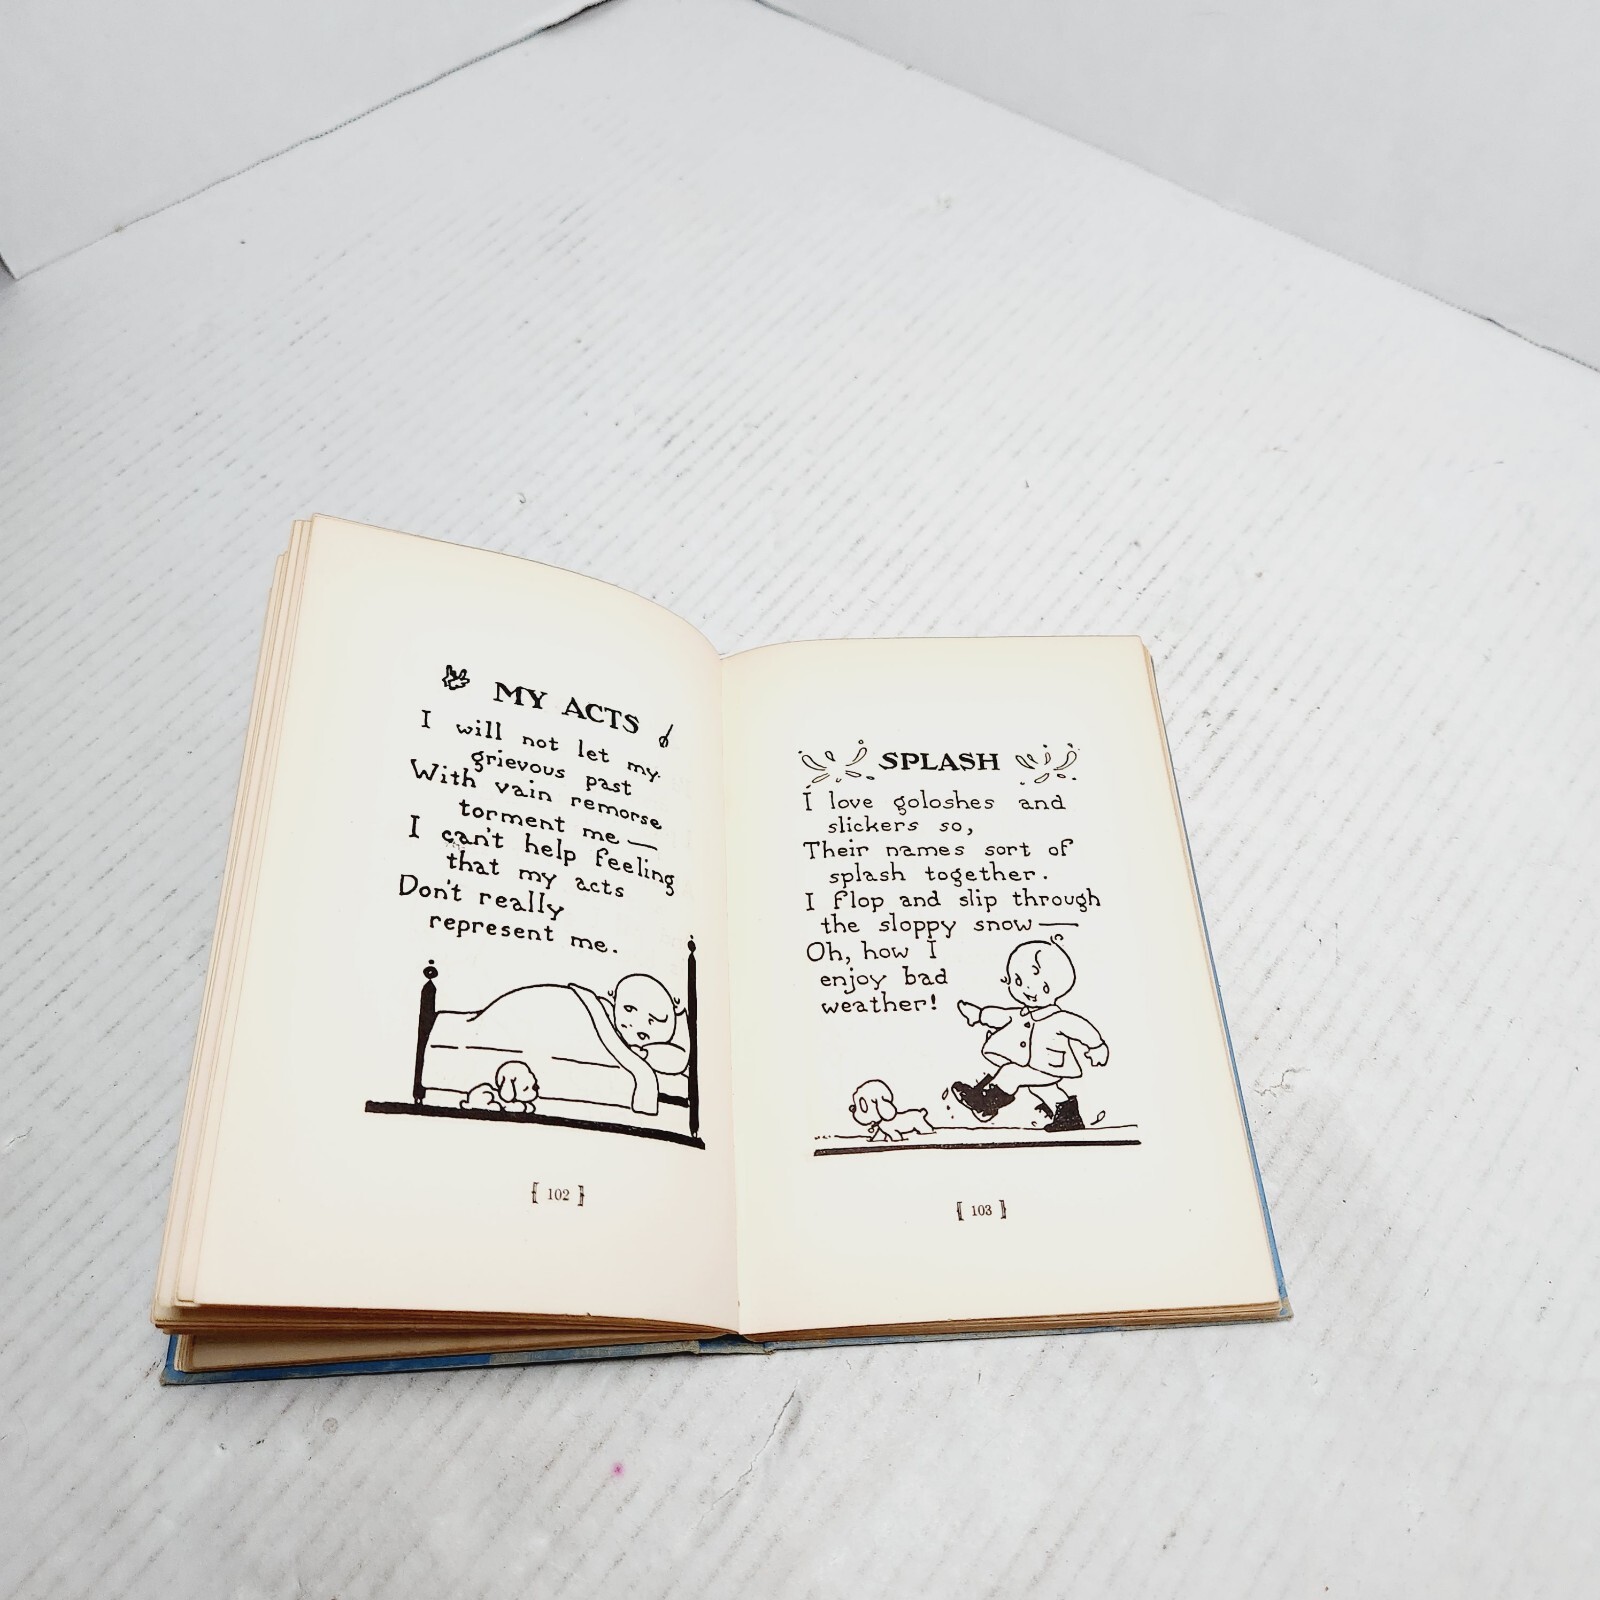 MY ACTS
I will not let my
grievous past
With vain remorse
torment me —
I can't help feeling
that my acts
Don't really
represent me.
[ 102 ]
SPLASH
I love goloshes and
slickers so,
Their names sort of
splash together.
I flop and slip through
the sloppy snow —
Oh, how I
enjoy bad
weather!
[ 103 ]